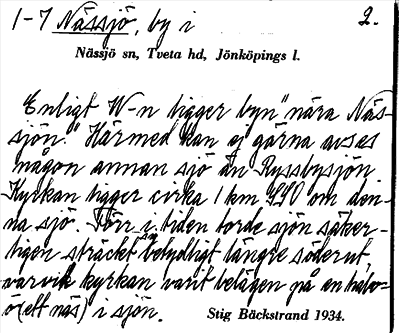 1-7 Nässjö, by i 2.
Nässjö sn, Tveta hd, Jönköpings l.
Enligt W-n ligger byn "nära Näs-
sjön." Härmed kan ej gärna avses
någon annan sjö än Ryssbysjön.
Kyrkan ligger cirka 1 km SSO om den-
na sjö. Förr i tiden torde sjön säker-
ligen sträckt så betydligt längre söderut,
varvid kyrkan varit belägen på en halv-
ö (ett näs) i sjön.
Stig Bäckstrand 1934.